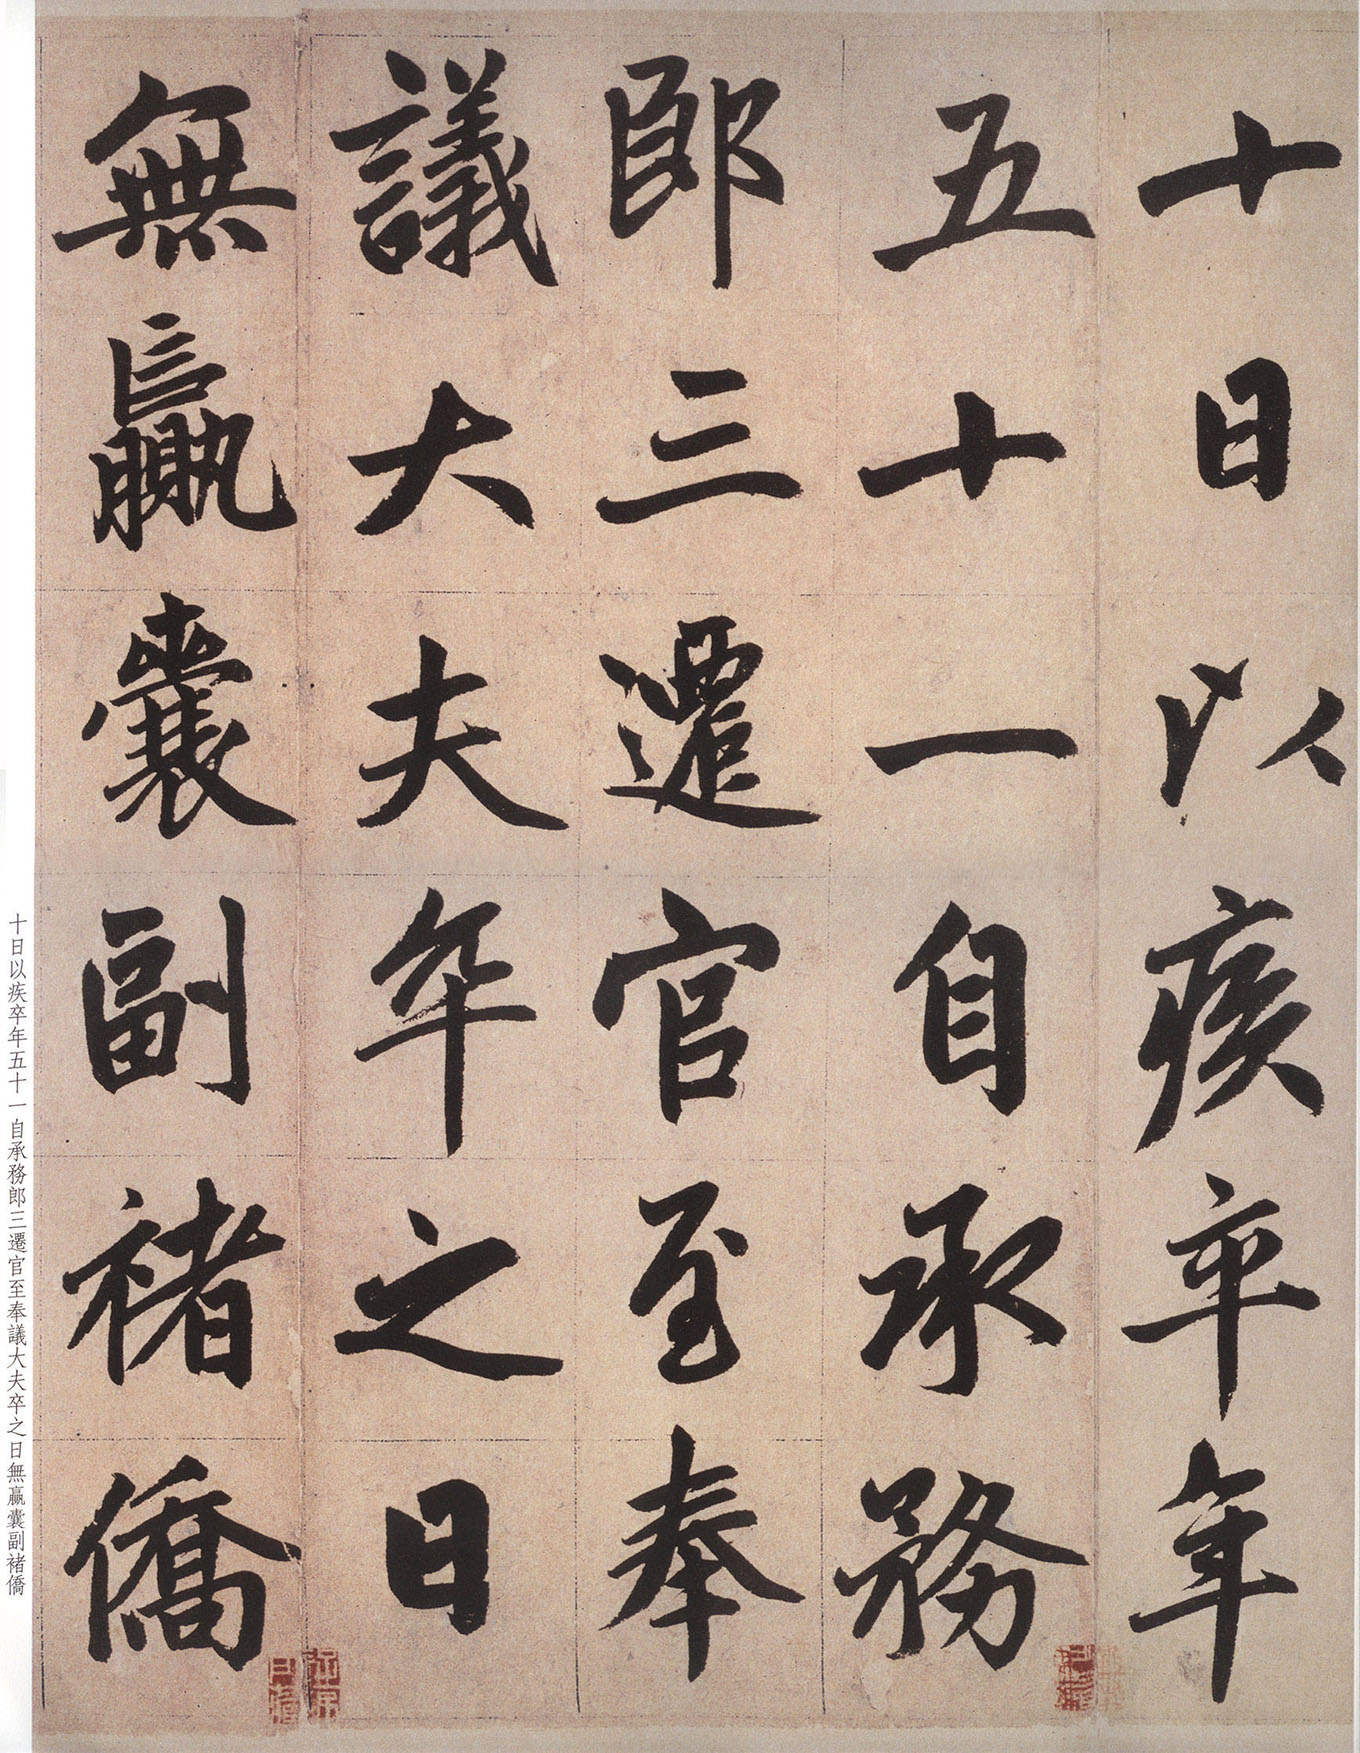 十日以疾卒年
五十一自承務
郎三遷官至奉
議大夫卒之日
無羸囊副褚僑
十日以疾卒年五十一自承務郎三遷官至奉議大夫卒之日無羸囊副褚僑